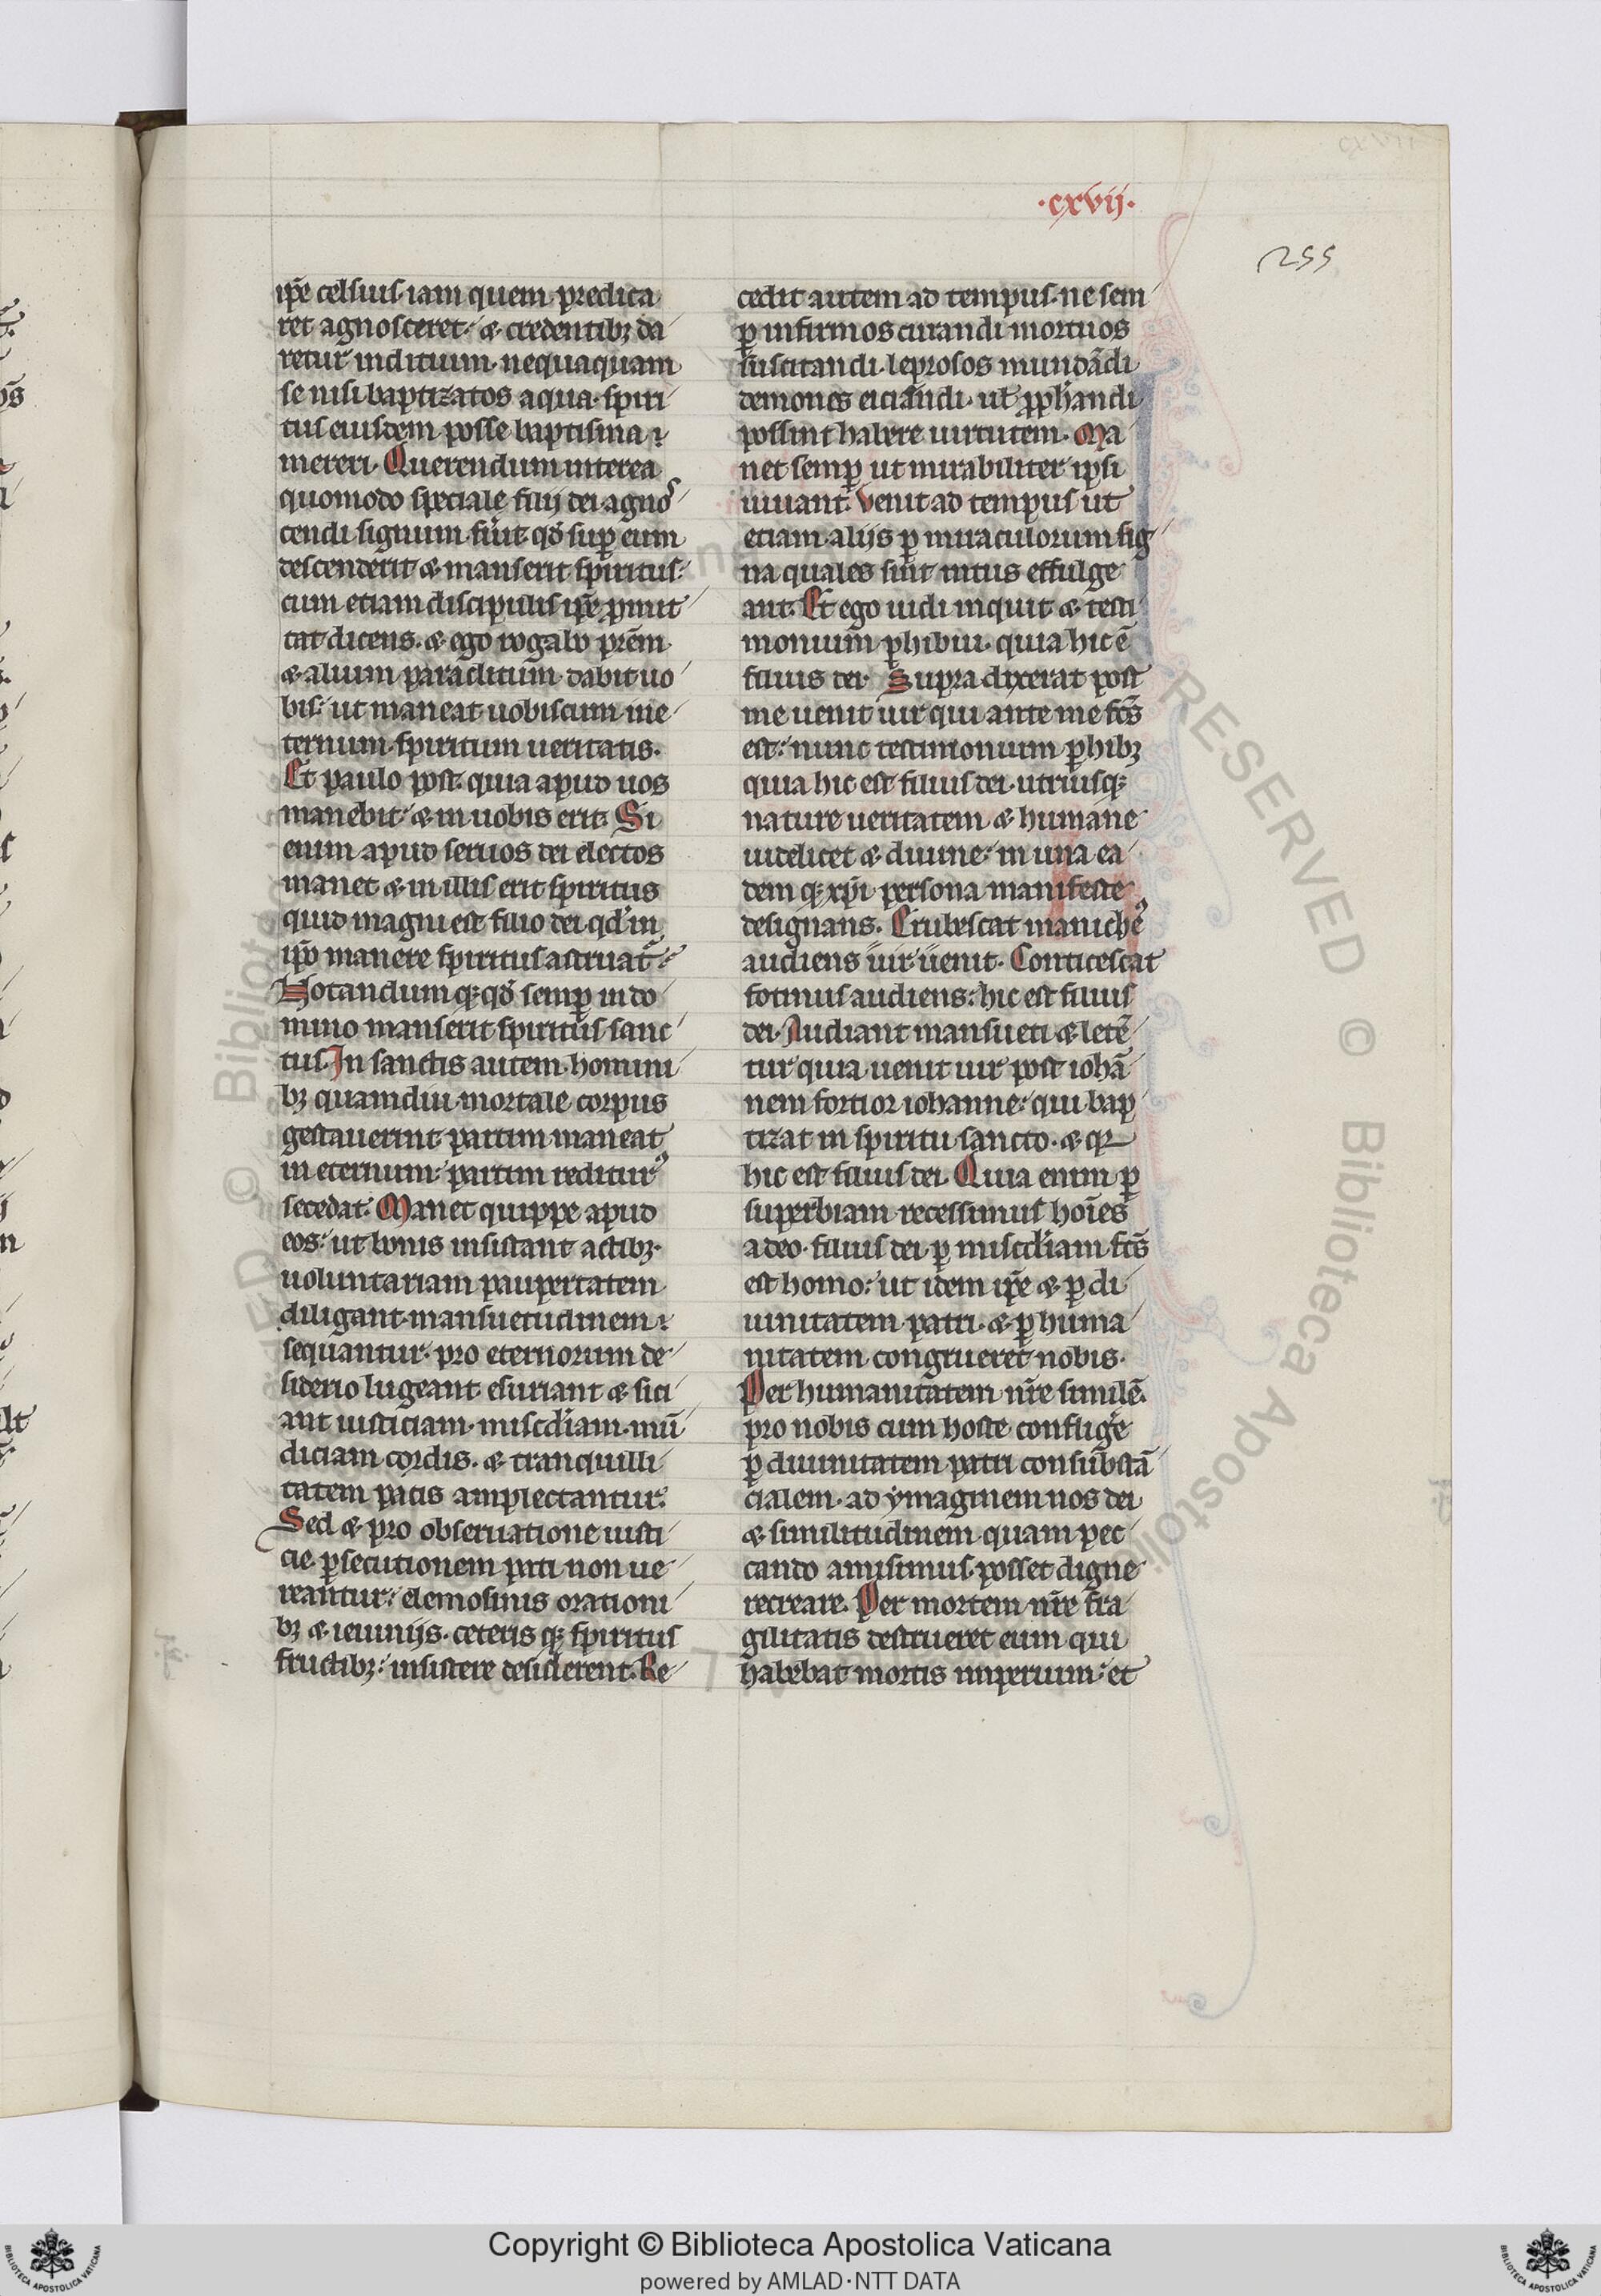 ·cxvij·
255
ip̄e celsius· iam quem predica
ret agnosceret: & credentibꝫ da
retur inditium· nequaquam
se nisi baptizatos aqua· spiri
tus eiusdem posse baptisma
mereri· Querendum interea
quomodo speciale filij dei agnos
cendi signum fuit qđ suꝑ eum
descenderit & manserit spiritus:
cum etiam discipulis ip̄e ꝓmit
tat dicens· & ego rogabo pr̄em
& alium paraclitum dabit uo
bis: ut maneat uobiscum in e
ternum· spiritum ueritatis·
Et paulo post· quia apud uos
manebit: & in uobis erit· Si
enim apud seruos dei electos
manet & in illis erit spiritus
quid magni est filio dei qđ in
ip̄o manere spiritus astruat᷑:
Notandum qꝫ qđ semꝑ in do
mino manserit spiritus sanc
tus· In sanctis autem homini
bꝫ quamdiu mortale corpus
gestauerint partim maneat
in eternum: partim rediturꝰ
secedat· Manet quippe apud
eos: ut bonis insistant actibꝫ·
uoluntariam paupertatem
diligant· mansuetudinem
sequantur· pro eternorum de
siderio lugeant· esuriant & siti
ant iusticiam· misc̄diam· mū
diciam cordis· & tranquilli
tatem pacis amplectantur:
Sed & pro obseruatione iusti
cie ꝑsecutionem pati non ue
reantur: elemosinis orationi
bꝫ & ieiuniis· ceteris qꝫ spiritus
fructibꝫ: insistere desiderent· Re
cedit autem ad tempus· ne sem
ꝑ infirmos curandi mortuos
suscitandi· leprosos mundādi
demones eiciandi· uł ꝓph̄andi
possint habere uirtutem· Ma
net semꝑ ut mirabiliter ipsi
uiuant· Venit ad tempus ut
etiam alijs ꝑ miraculorum sig
na quales sint intus effulge
ant· Et ego uidi inquit & testi
monium ꝑhibui· quia hic ē
filius dei· Supra dixerat post
me uenit uir qui ante me fc̄s
est: nunc testimonium ꝑhibꝫ
quia hic est filius dei· utriusqꝫ
nature ueritatem & humane
uidelicet & diuine: in una ea
dem qꝫ xp̄i persona manifeste
designans· Erubescat manicheꝰ
audiens uir uenit· Conticescat
fotinus audiens: hic est filius
dei· Audiant mansueti & letē
tur quia uenit uir post iohā
nem fortior iohanne: qui bap
tizat in spiritu sancto· & qꝛ
hic est filius dei· Quia enim ꝑ
superbiam recessimus hoīes
a deo· filius dei ꝑ misc̄diam fc̄s
est homo: ut idem ip̄e & ꝑ di
uinitatem patri· & ꝑ huma
nitatem congrueret nobis·
Per humanitatem nr̄e similē·
pro nobis cum hoste confligere
ꝑ diuinitatem patri consubstā
cialem· ad ymaginem nos dei
& similitudinem quam pec
cando amisimus· posset digne
recreare· Per mortem nr̄e fra
gilitatis destrueret eum qui
habebat mortis imperium: et
Copyright © Biblioteca Apostolica Vaticana
powered by AMLAD·NTT DATA